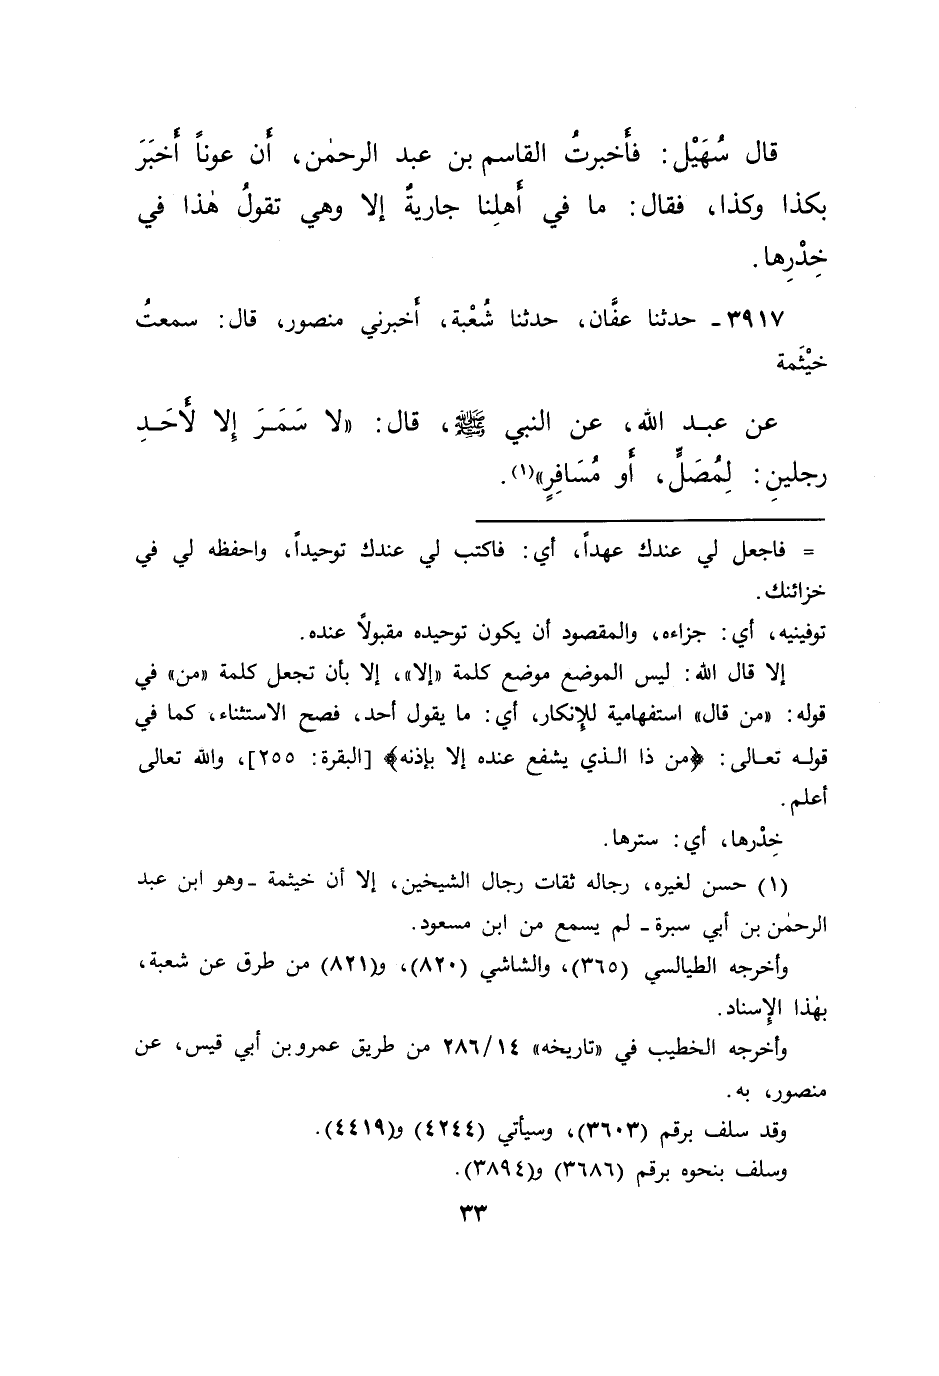 قال سُهَيْل: فأَخبرتُ القاسم بن عبد الرحمٰن، أَن عوناً أَخبَرَ
بكذا وكذا، فقال: ما في أَهلِنا جاريةٌ إلا وهي تقولُ هٰذا في
خِدْرِها.
٣٩١٧ - حدثنا عفَّان، حدثنا شُعْبة، أَخبرني منصور، قال: سمعتُ
خيْثَمة
عن عبد الله، عن النبي ﷺ، قال: «لا سَمَرَ إِلا لأَحَدِ
رجلينِ: لِمُصَلٍّ، أَو مُسَافِرٍ»(١).
= فاجعل لي عندك عهداً، أي: فاكتب لي عندك توحيداً، واحفظه لي في
خزائنك.
توفينيه، أي: جزاءه، والمقصود أن يكون توحيده مقبولاً عنده.
إلا قال الله: ليس الموضع موضع كلمة «إلا»، إلا بأن تجعل كلمة «من» في
قوله: «من قال» استفهامية للإِنكار، أي: ما يقول أحد، فصح الاستثناء، كما في
قوله تعالى: ﴿من ذا الذي يشفع عنده إلا بإذنه﴾ [البقرة: ٢٥٥]، والله تعالى
أعلم.
خِدْرها، أي: سترها.
(١) حسن لغيره، رجاله ثقات رجال الشيخين، إلا أن خيثمة - وهو ابن عبد
الرحمٰن بن أبي سبرة - لم يسمع من ابن مسعود.
وأخرجه الطيالسي (٣٦٥)، والشاشي (٨٢٠)، و(٨٢١) من طرق عن شعبة،
بهٰذا الإِسناد.
وأخرجه الخطيب في «تاريخه» ٢٨٦/١٤ من طريق عمرو بن أبي قيس، عن
منصور، به.
وقد سلف برقم (٣٦٠٣)، وسيأتي (٤٢٤٤) و(٤٤١٩).
وسلف بنحوه برقم (٣٦٨٦) و(٣٨٩٤).
٣٣